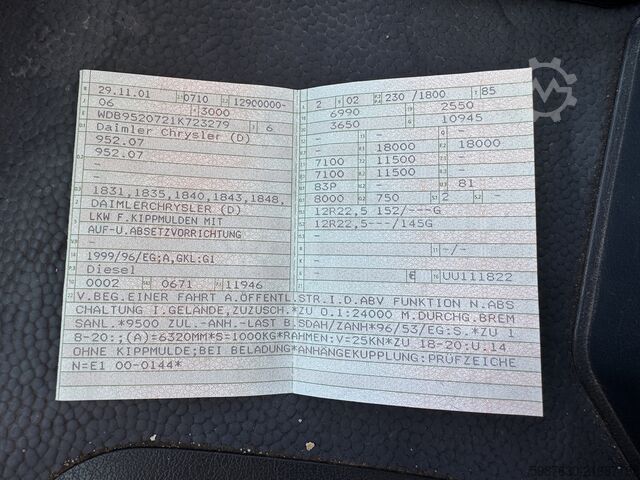 29.11.01 0710 12900000-
06 3000
WDB9520721K723279 6
Daimler Chrysler (D)
952.07
952.07
-
-
1831,1835,1840,1843,1848,
DAIMLERCHRYSLER (D)
LKW F.KIPPMULDEN MIT
AUF-U.ABSETZVORRICHTUNG
-
1999/96/EG;A,GKL:G1
Diesel
0002 0671 11946
2 02 230 /1800 85
6990 2550
3650 10945
- - -
- 18000 18000
7100 11500 -
7100 11500 -
83P - 81
8000 750 2 -
12R22,5 152/---G
12R22,5---/145G
-
-
- -/-
- E UU111822
V.BEG.EINER FAHRT A.ÖFFENTL.STR.I.D.ABV FUNKTION N.ABS
CHALTUNG I.GELÄNDE,ZUZUSCH.*ZU O.1:24000 M.DURCHG.BREM
SANL.*9500 ZUL.-ANH.-LAST B.SDAH/ZANH*96/53/EG:S.*ZU 1
8-20:;(A)=6320MM*S=1000KG*RAHMEN:V=25KN*ZU 18-20:U.14
OHNE KIPPMULDE;BEI BELADUNG*ANHÄNGEKUPPLUNG:PRÜFZEICHE
N=E1 00-0144*